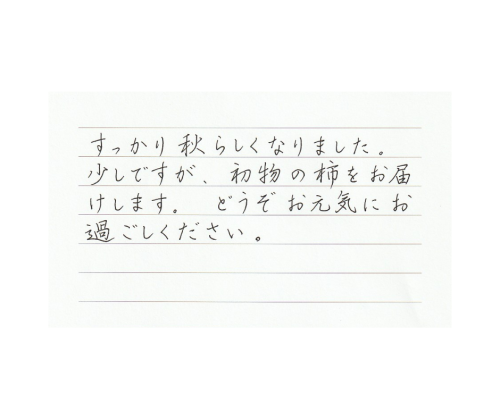 すっかり秋らしくなりました。
少しですが、初物の柿をお届
けします。 どうぞお元気にお
過ごしください。